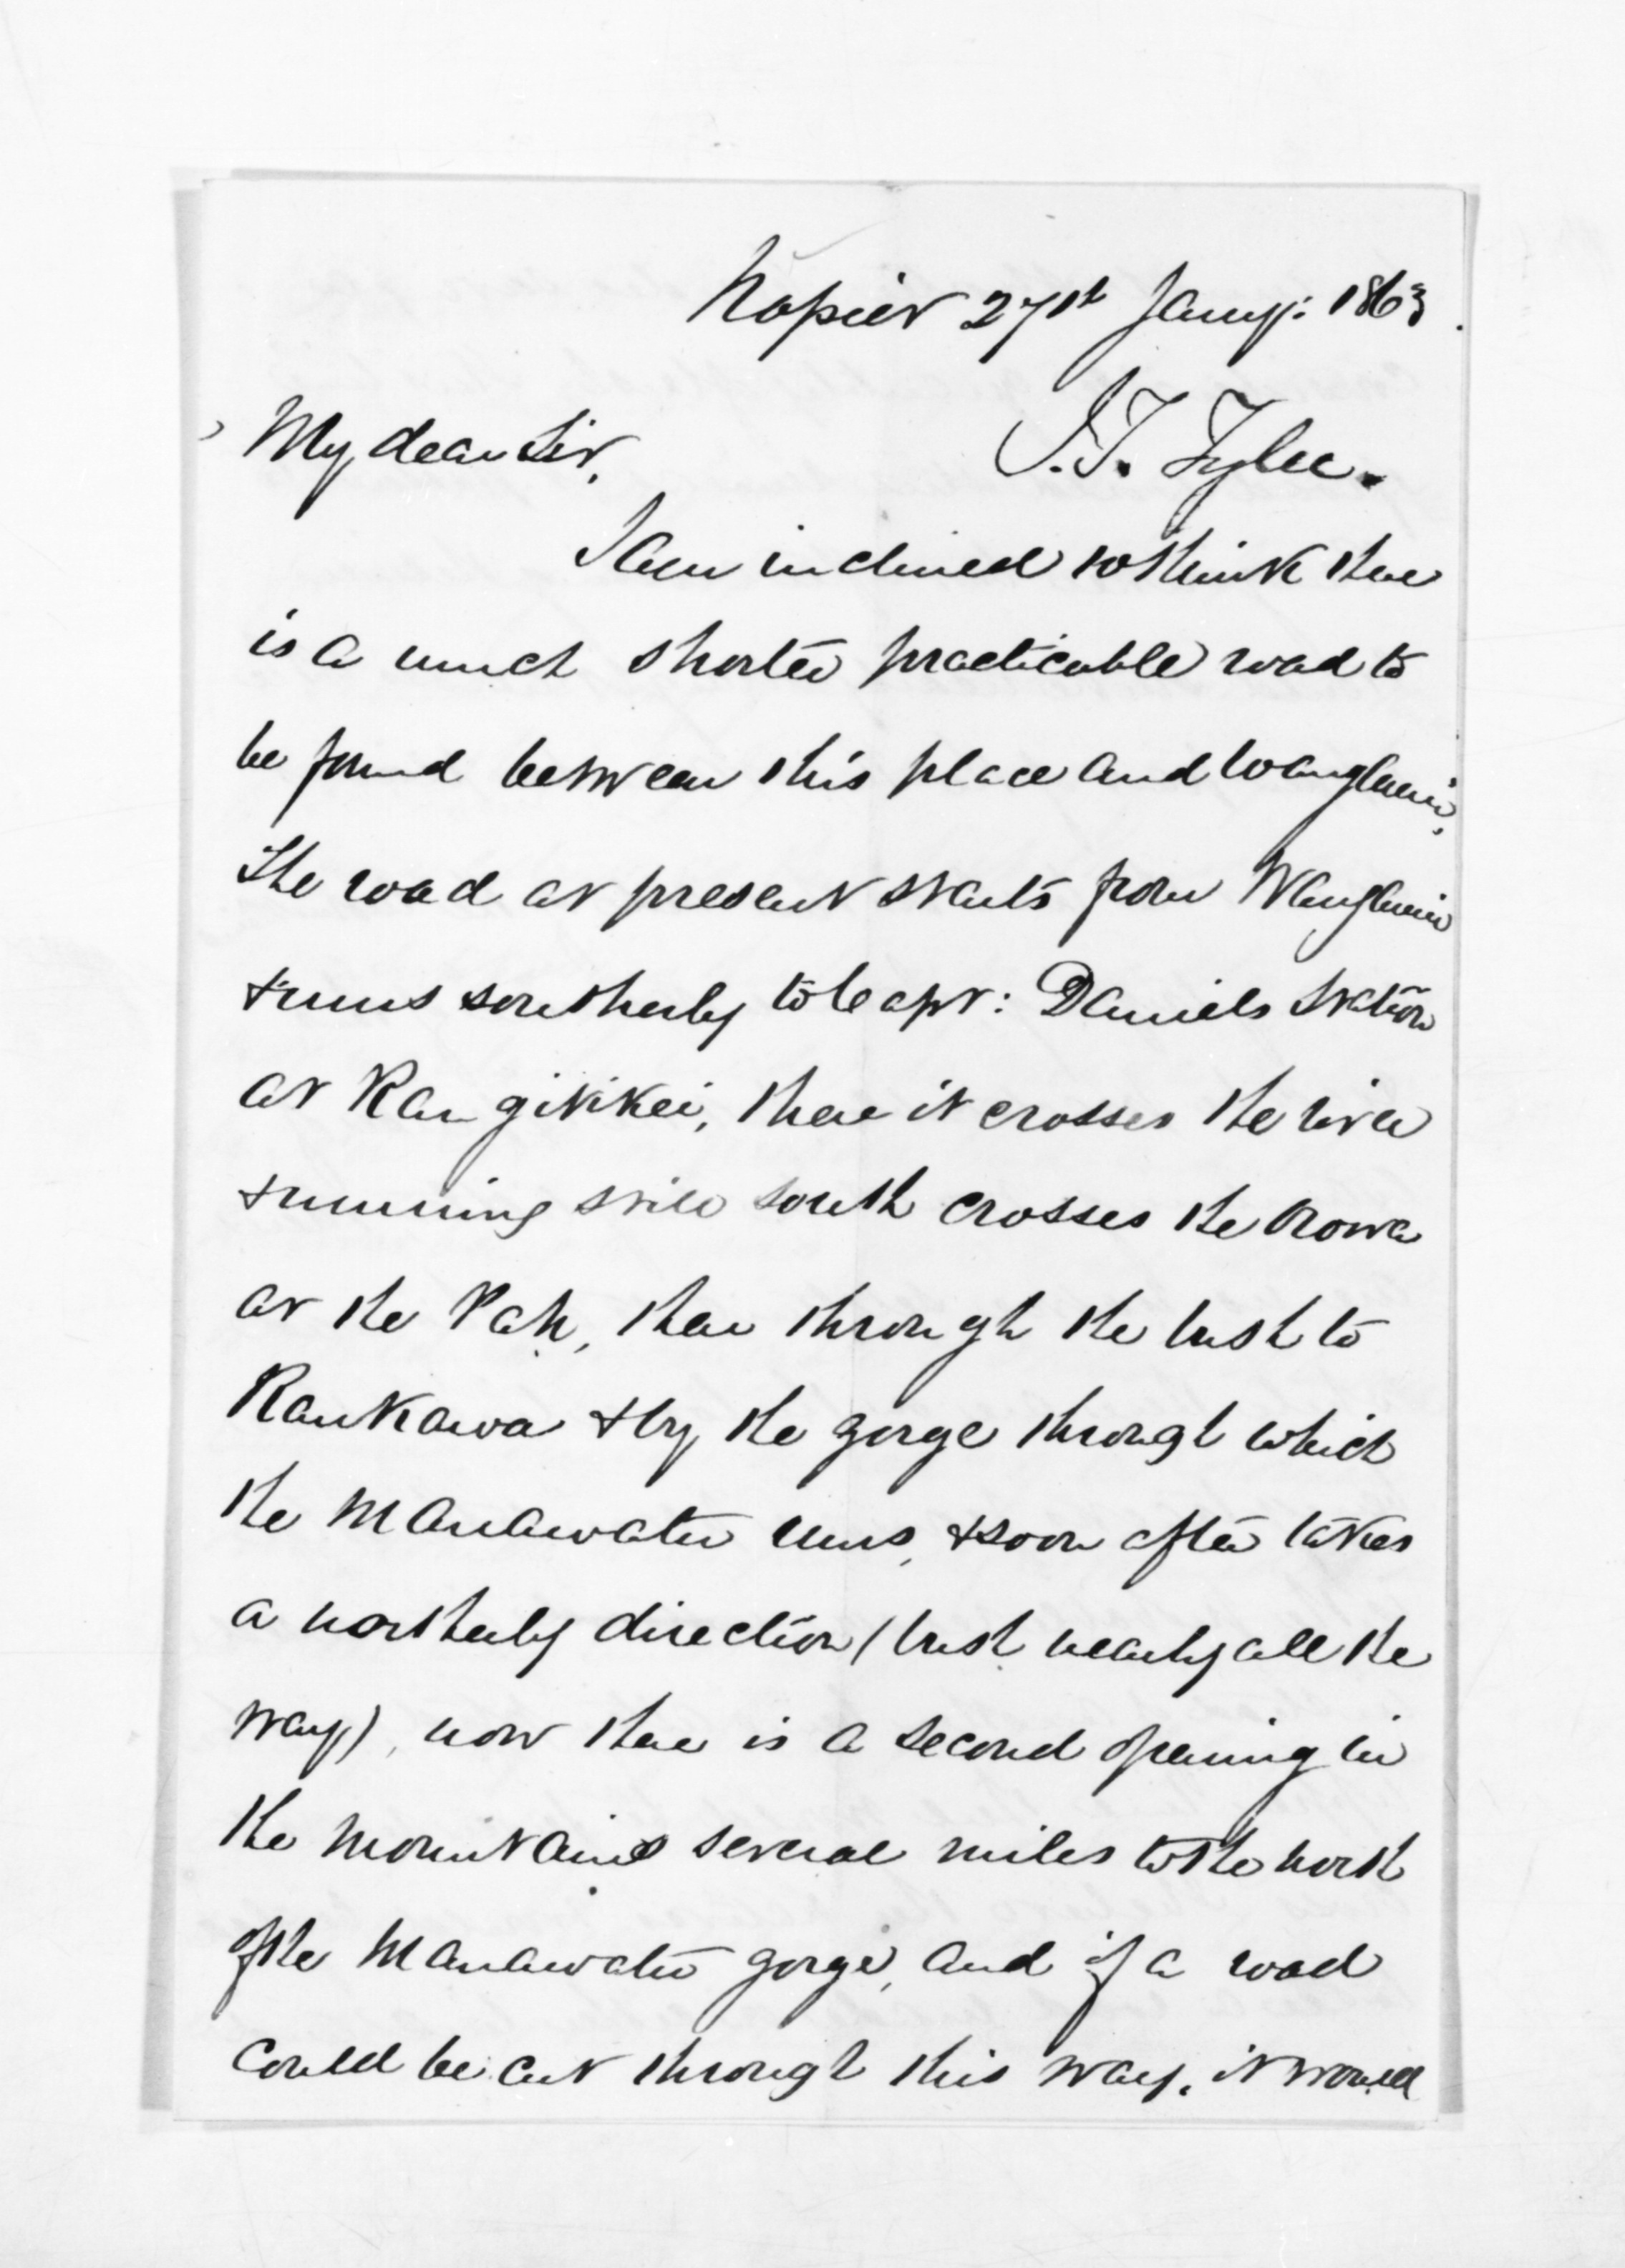 Napier 27th Jany: 1863.
My dear Sir,
J. T. Tylee.
I am inclined to think there
is a much shorter practicable road to
be found between this place and Wanganui,
The road at present starts from Wanganui
& runs southerly to Capt: Daniels Station
at Rangitikei, there it crosses the river
& running still south crosses the Orowa
at the Pah, then through the bush to
Raukawa & by the gorge through which
the Manawatu runs, & soon after takes
a northerly direction (bush nearly all the
way), now there is a second opening in
the mountains several miles to the north
of the Manawatu gorge, and if a road
could be cut through this way, it would